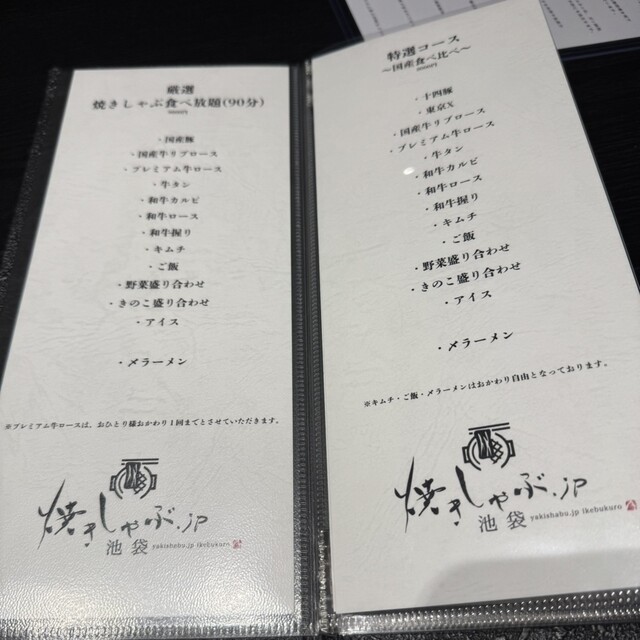 厳選
焼きしゃぶ食べ放題(90分)
・国産豚
・国産牛リブロース
・プレミアム牛ロース
・牛タン
・和牛カルビ
・和牛ロース
・和牛握り
・キムチ
・ご飯
・野菜盛り合わせ
・きのこ盛り合わせ
・アイス
・〆ラーメン
※プレミアム牛ロースは、おひとり様おかわり1回までとさせていただきます。
焼きしゃぶ.jp
池袋 yakishabu.jp ikebukuro
特選コース
〜国産食べ比べ〜
・十四豚
・東京X
・国産牛リブロース
・プレミアム牛ロース
・牛タン
・和牛カルビ
・和牛ロース
・和牛握り
・キムチ
・ご飯
・野菜盛り合わせ
・きのこ盛り合わせ
・アイス
・〆ラーメン
※キムチ・ご飯・〆ラーメンはおかわり自由となっております。
焼きしゃぶ.jp
池袋 yakishabu.jp ikebukuro